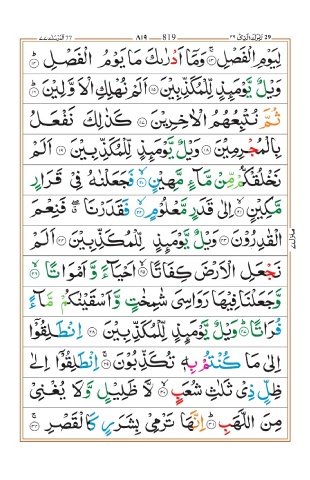 المرسلات ٧٧ ٨١٩ 819 تبارك الذي ٢٩ 29
لِيَوْمِ الْفَصْلِ ﴿١٣﴾ وَمَآ اَدْرٰىكَ مَا يَوْمُ الْفَصْلِ ﴿١٤﴾
وَيْلٌ يَّوْمَئِذٍ لِّلْمُكَذِّبِيْنَ ﴿١٥﴾ اَلَمْ نُهْلِكِ الْاَوَّلِيْنَ ﴿١٦﴾
ثُمَّ نُتْبِعُهُمُ الْاٰخِرِيْنَ ﴿١٧﴾ كَذٰلِكَ نَفْعَلُ
بِالْمُجْرِمِيْنَ ﴿١٨﴾ وَيْلٌ يَّوْمَئِذٍ لِّلْمُكَذِّبِيْنَ ﴿١٩﴾ اَلَمْ
نَخْلُقْكُّمْ مِّنْ مَّآءٍ مَّهِيْنٍ ﴿٢٠﴾ فَجَعَلْنٰهُ فِيْ قَرَارٍ
مَّكِيْنٍ ﴿٢١﴾ اِلٰى قَدَرٍ مَّعْلُوْمٍ ﴿٢٢﴾ فَقَدَرْنَا فَنِعْمَ
الْقٰدِرُوْنَ ﴿٢٣﴾ وَيْلٌ يَّوْمَئِذٍ لِّلْمُكَذِّبِيْنَ ﴿٢٤﴾ اَلَمْ
نَجْعَلِ الْاَرْضَ كِفَاتًا ﴿٢٥﴾ اَحْيَآءً وَّ اَمْوَاتًا ﴿٢٦﴾
وَّجَعَلْنَا فِيْهَا رَوَاسِيَ شٰمِخٰتٍ وَّاَسْقَيْنٰكُمْ مَّآءً
فُرَاتًا ﴿٢٧﴾ وَيْلٌ يَّوْمَئِذٍ لِّلْمُكَذِّبِيْنَ ﴿٢٨﴾ اِنْطَلِقُوْٓا
اِلٰى مَا كُنْتُمْ بِهٖ تُكَذِّبُوْنَ ﴿٢٩﴾ اِنْطَلِقُوْٓا اِلٰى
ظِلٍّ ذِيْ ثَلٰثِ شُعَبٍ ﴿٣٠﴾ لَّا ظَلِيْلٍ وَّلَا يُغْنِيْ
مِنَ اللَّهَبِ ﴿٣١﴾ اِنَّهَا تَرْمِيْ بِشَرَرٍ كَالْقَصْرِ ﴿٣٢﴾